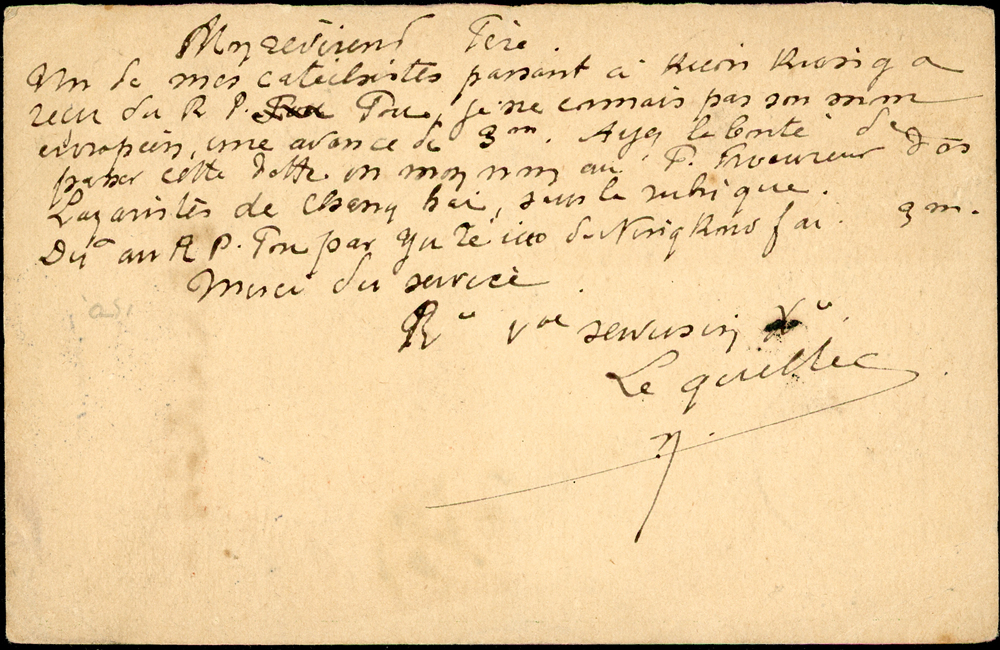 Mon révérend Père
Un de mes catéchistes passant à Kieou Kiang a
reçu du R P. Fou, je ne connais pas son nom
européen, une avance de 3 m. Ayez la bonté de
passer cette dette en mon nom au P. Procureur des
Lazaristes de Chang hai, sous la rubrique.
Dû au R P. Fou par de Ning Kouo fou. 3 m.
Merci du service
Le quellec